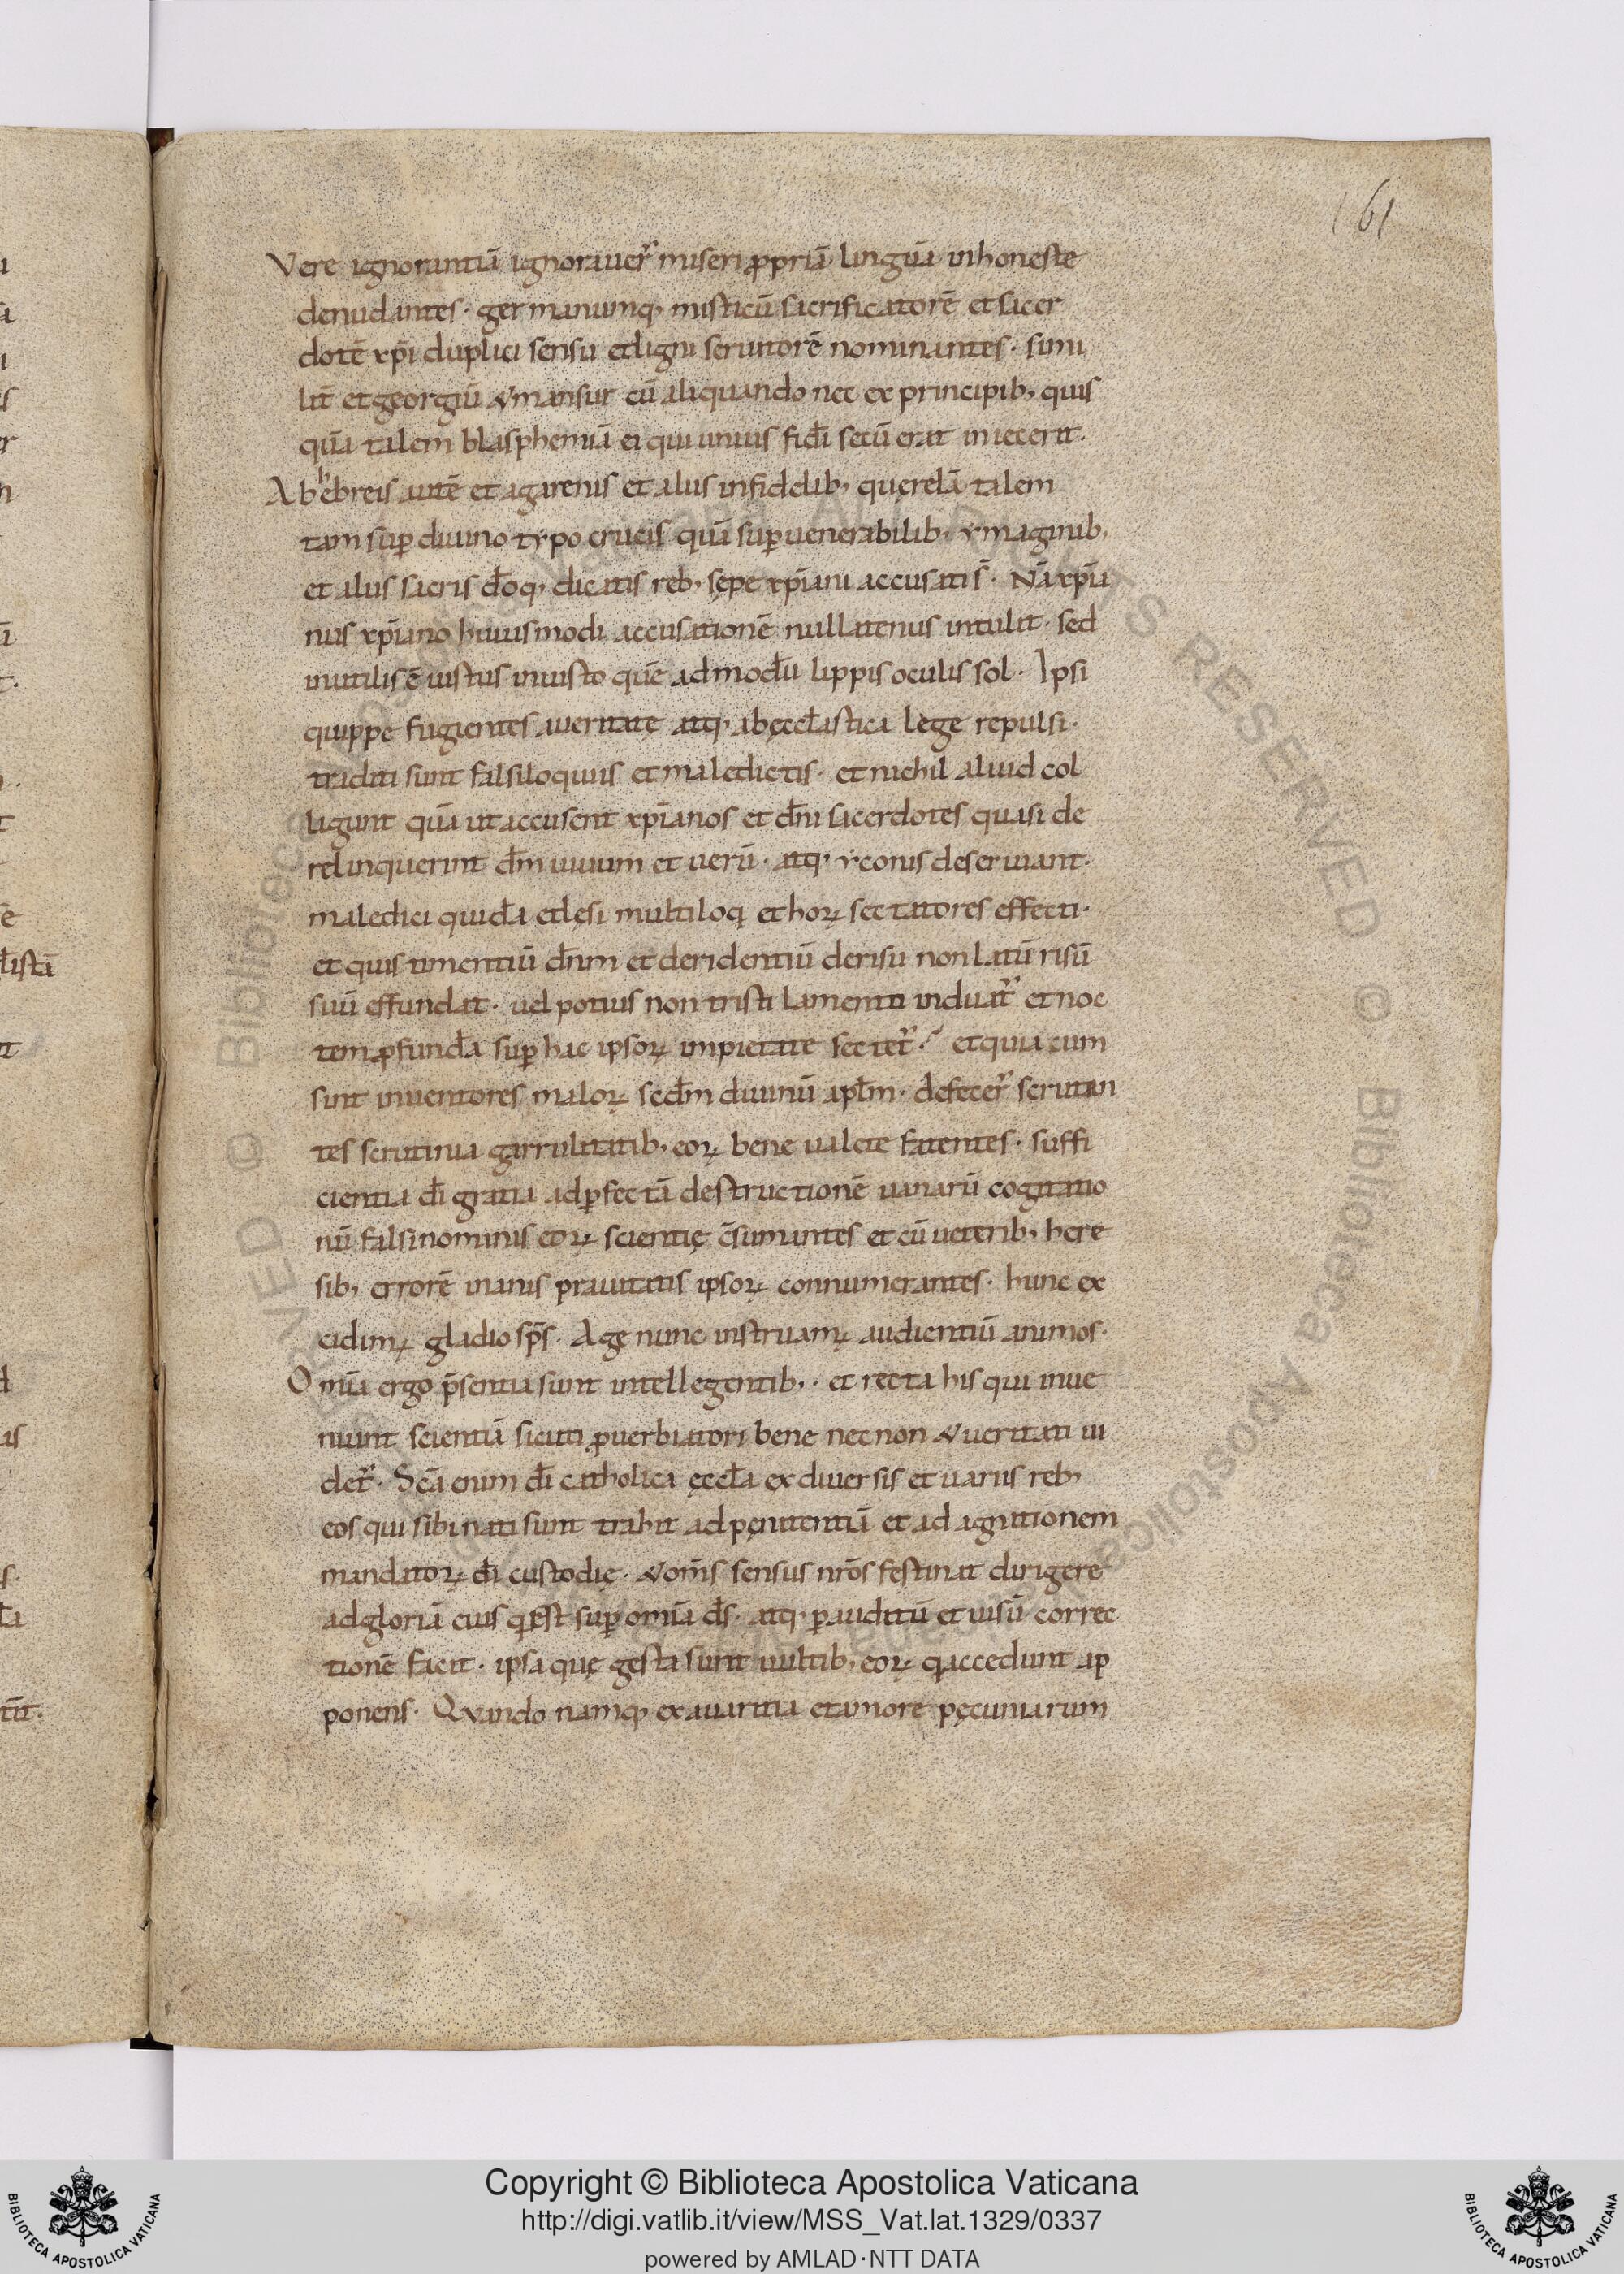 161
Vere ignorantiā ignorauer̄ miseri ꝓpriā linguā inhoneste
denudantes · germanumq; misticū sacrificatorē et sacer
dotē xp̄i duplici sensu et ligni seruitorē nominantes · simi
lit̄ et georgiū & mansur cū aliquando nec ex principib; quis
quā talem blasphemiā ei qui unius fid̄i secū erat iniecerit ·
Ab hebreis autē et agarenis et aliis infidelib; quęrelā talem
tam suꝑ diuino tẏpo crucis quā suꝑ uenerabilib; ẏmaginib;
et aliis sacris d̄oq; dicatis reb; sępe xp̄iani accusati s̄ · Nā xp̄ia
nus xp̄iano huiusmodi accusationē nullatenus intulit · sed
inutilis ē iustus iniusto quē admod̄u lippis oculis sol · Ipsi
quippe fugientes a ueritate atq; ab ęccl̄astica lege repulsi ·
traditi sunt falsiloquiis et maledictis · et nichil aliud col
ligunt quā ut accusent xp̄ianos et dn̄i sacerdotes quasi de
relinquerint dm̄ uiuum et uerū · atq; ẏconis deseruiant ·
maledici quid̄a et lęsi multiloq et hoꝝ sectatores effecti ·
et quis timentiū dn̄m et deridentiū derisu non latū risū
suū effundat · uel potius non tristi lamenti induat̄ et noc
tem ꝓfund̄a suꝑ hac ipsoꝝ impietate sectet̄ · et quia cum
sint inuentores maloꝝ scd̄m diuinū apl̄m · defecer̄ scrutan
tes scrutinia garrulitatib; eoꝝ bene ualete fatentes · suffi
cientia d̄i gratia ad ꝑfectā destructionē uanarū cogitatio
nū falsi nominis eoꝝ scientię c̄sumantes et cū ueterib; here
sib; errorē inanis prauitatis ipsoꝝ connumerantes · hunc ex
cidimꝝ gladio sp̄s · Age nunc instruamꝝ audientiū animos ·
Omīa ergo p̄sentia sunt intellegentib; · et recta his qui inue
niunt scientiā sicuti ꝓuerbiatori bene nec non & ueritati ui
det̄ · Scā enim d̄i catholica ęccl̄a ex diuersis et uariis reb;
eos qui sibi nati sunt trahit ad pęnitentiā et ad agnitionem
mandatoꝝ d̄i custodię · & om̄s sensus nr̄os festinat dirigere
ad gloriā eius q est suꝑ omīa d̄s · atq; ꝑ auditū et uisū correc
tionē facit · ipsa quę gesta sunt uultib; eoꝝ q accedunt ap
ponens · Quando namq; ex auaritia et amore pęcuniarum
Copyright © Biblioteca Apostolica Vaticana
http://digi.vatlib.it/view/MSS_Vat.lat.1329/0337
powered by AMLAD·NTT DATA
BIBLIOTECA APOSTOLICA VATICANA
BIBLIOTECA APOSTOLICA VATICANA